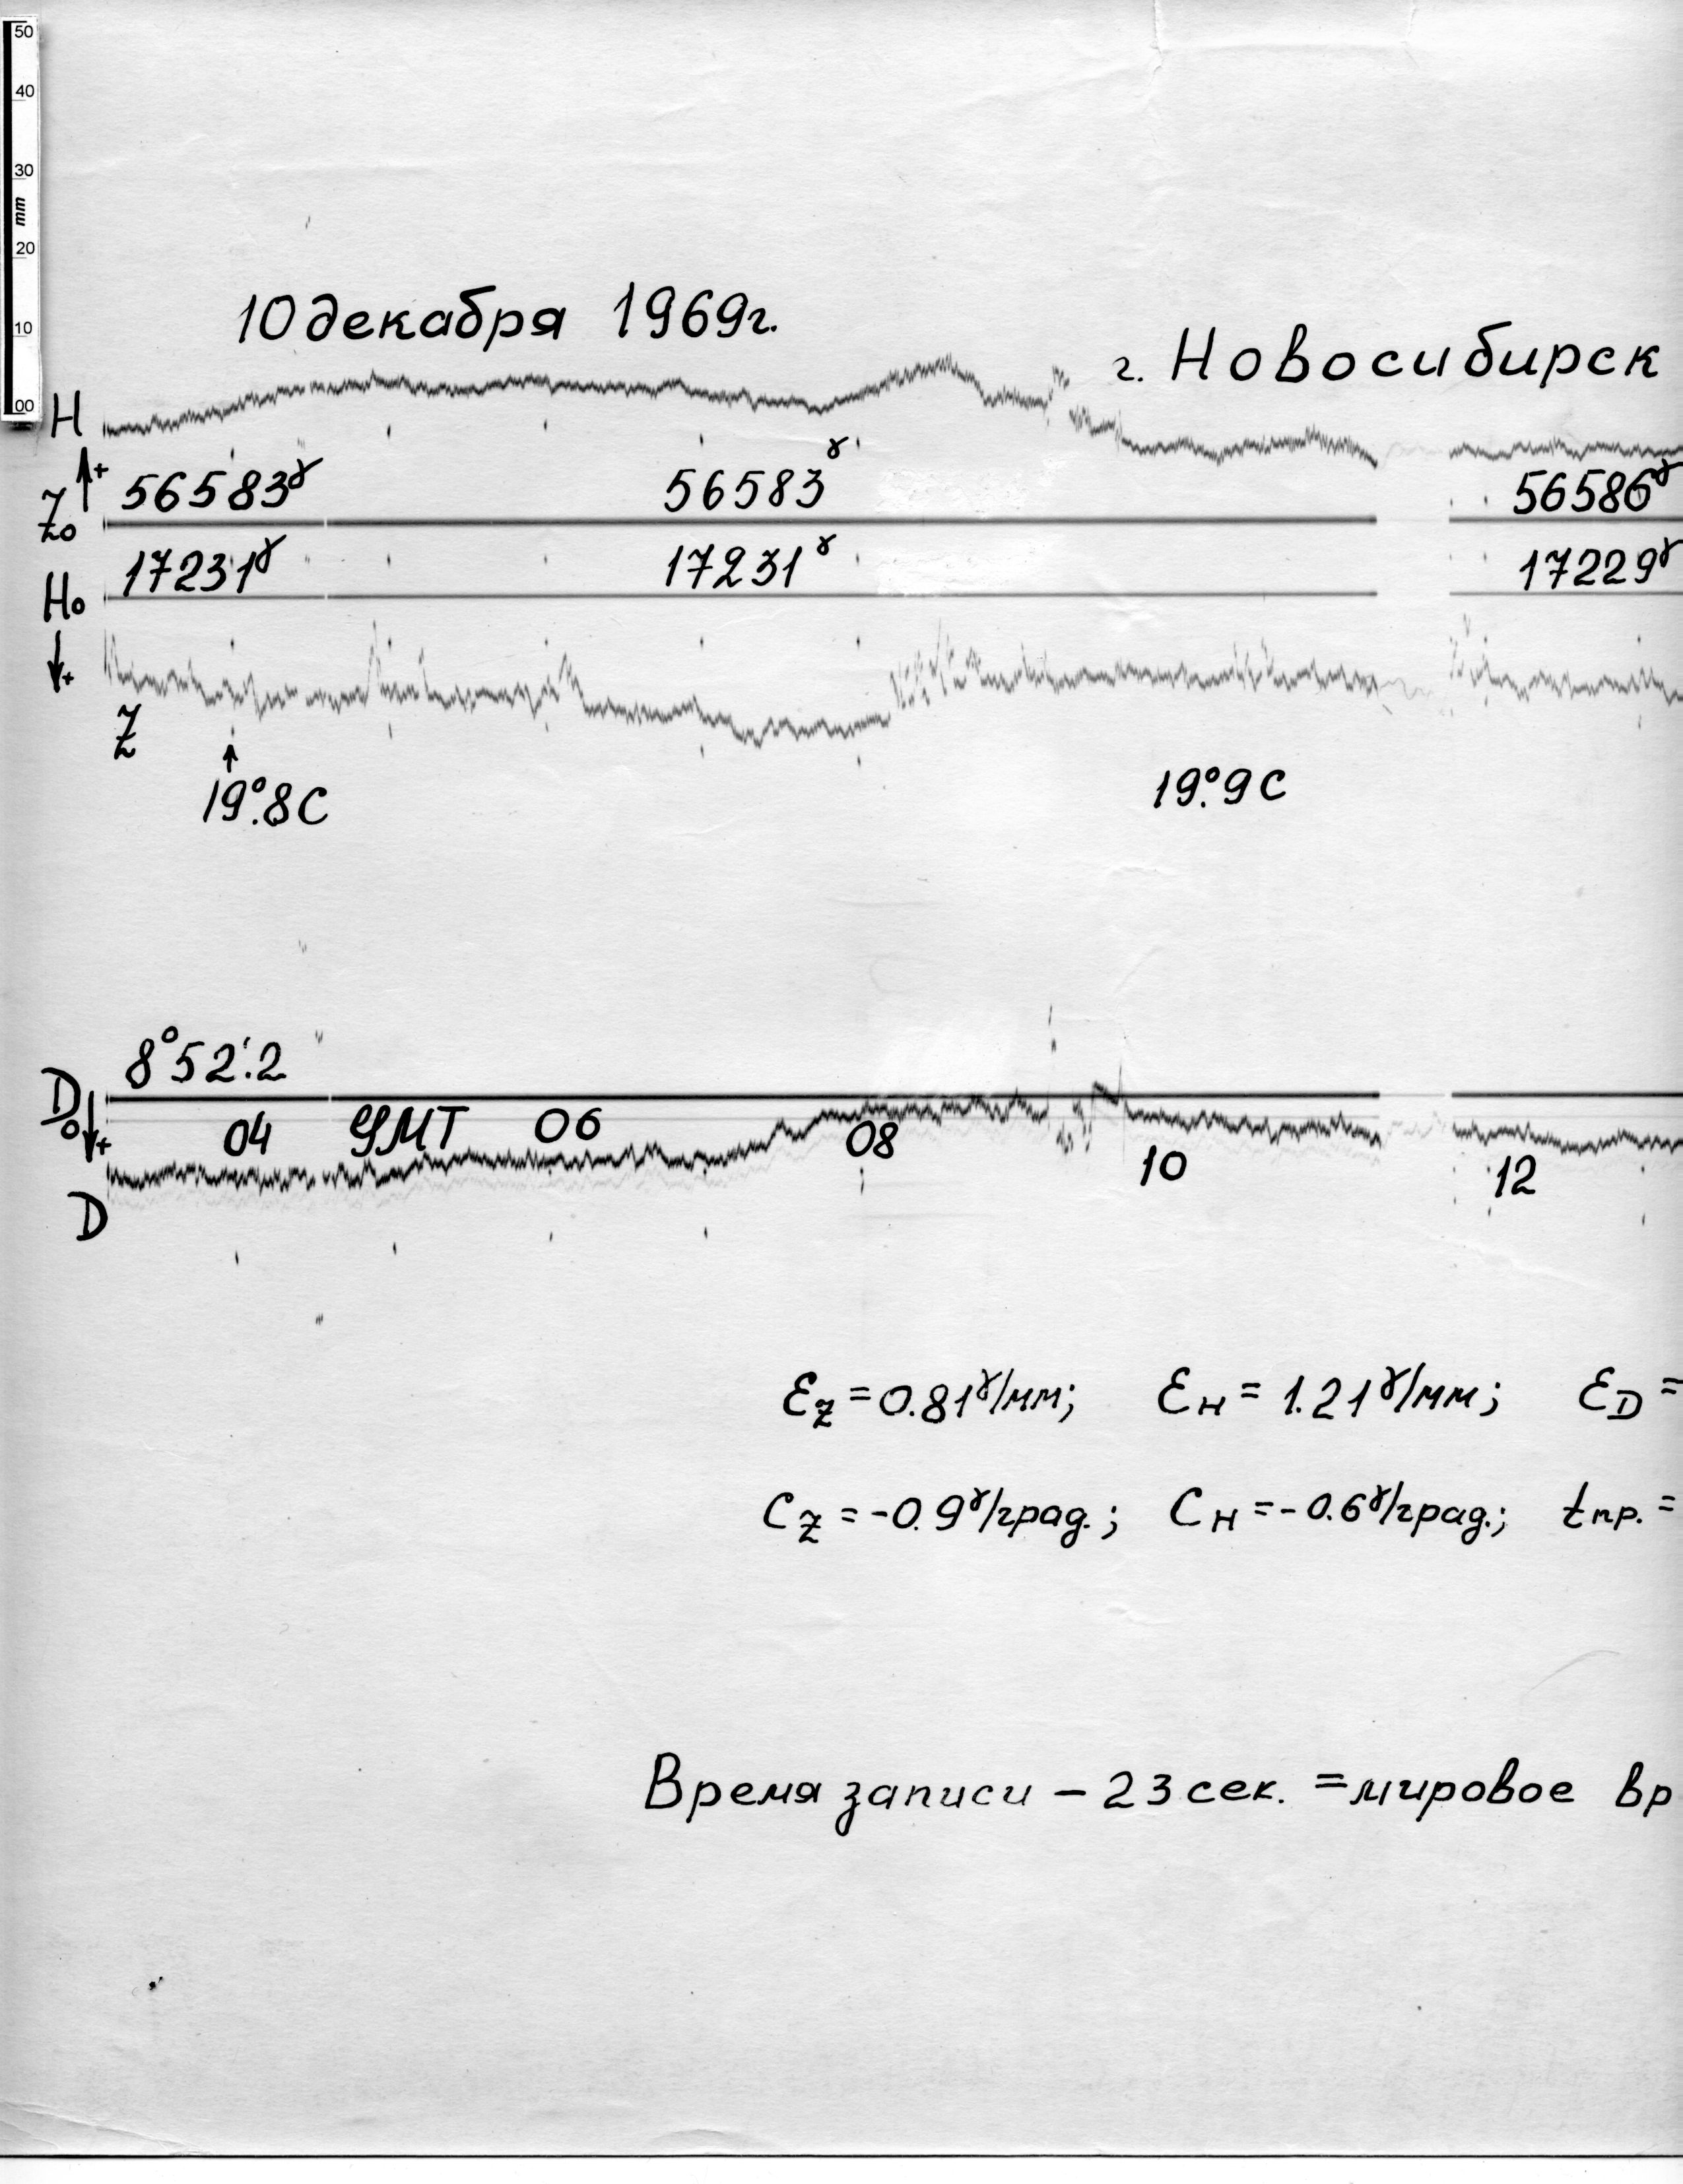 50
40
30
mm
20
10
00
10 декабря 1969г.
г. Новосибирск
H
+
56583γ 56583γ 56586γ
Z₀
17231γ 17231γ 17229γ
H₀
+
Z
19°.8C 19°.9C
8°52'.2
D₀
+
04 GMT 06 08 10 12
D
Ɛz = 0.81γ/мм; Ɛн = 1.21γ/мм; ƐD =
Cz = -0.9γ/град.; Cн = -0.6γ/град.; tпр. =
Время записи – 23 сек. = мировое вр